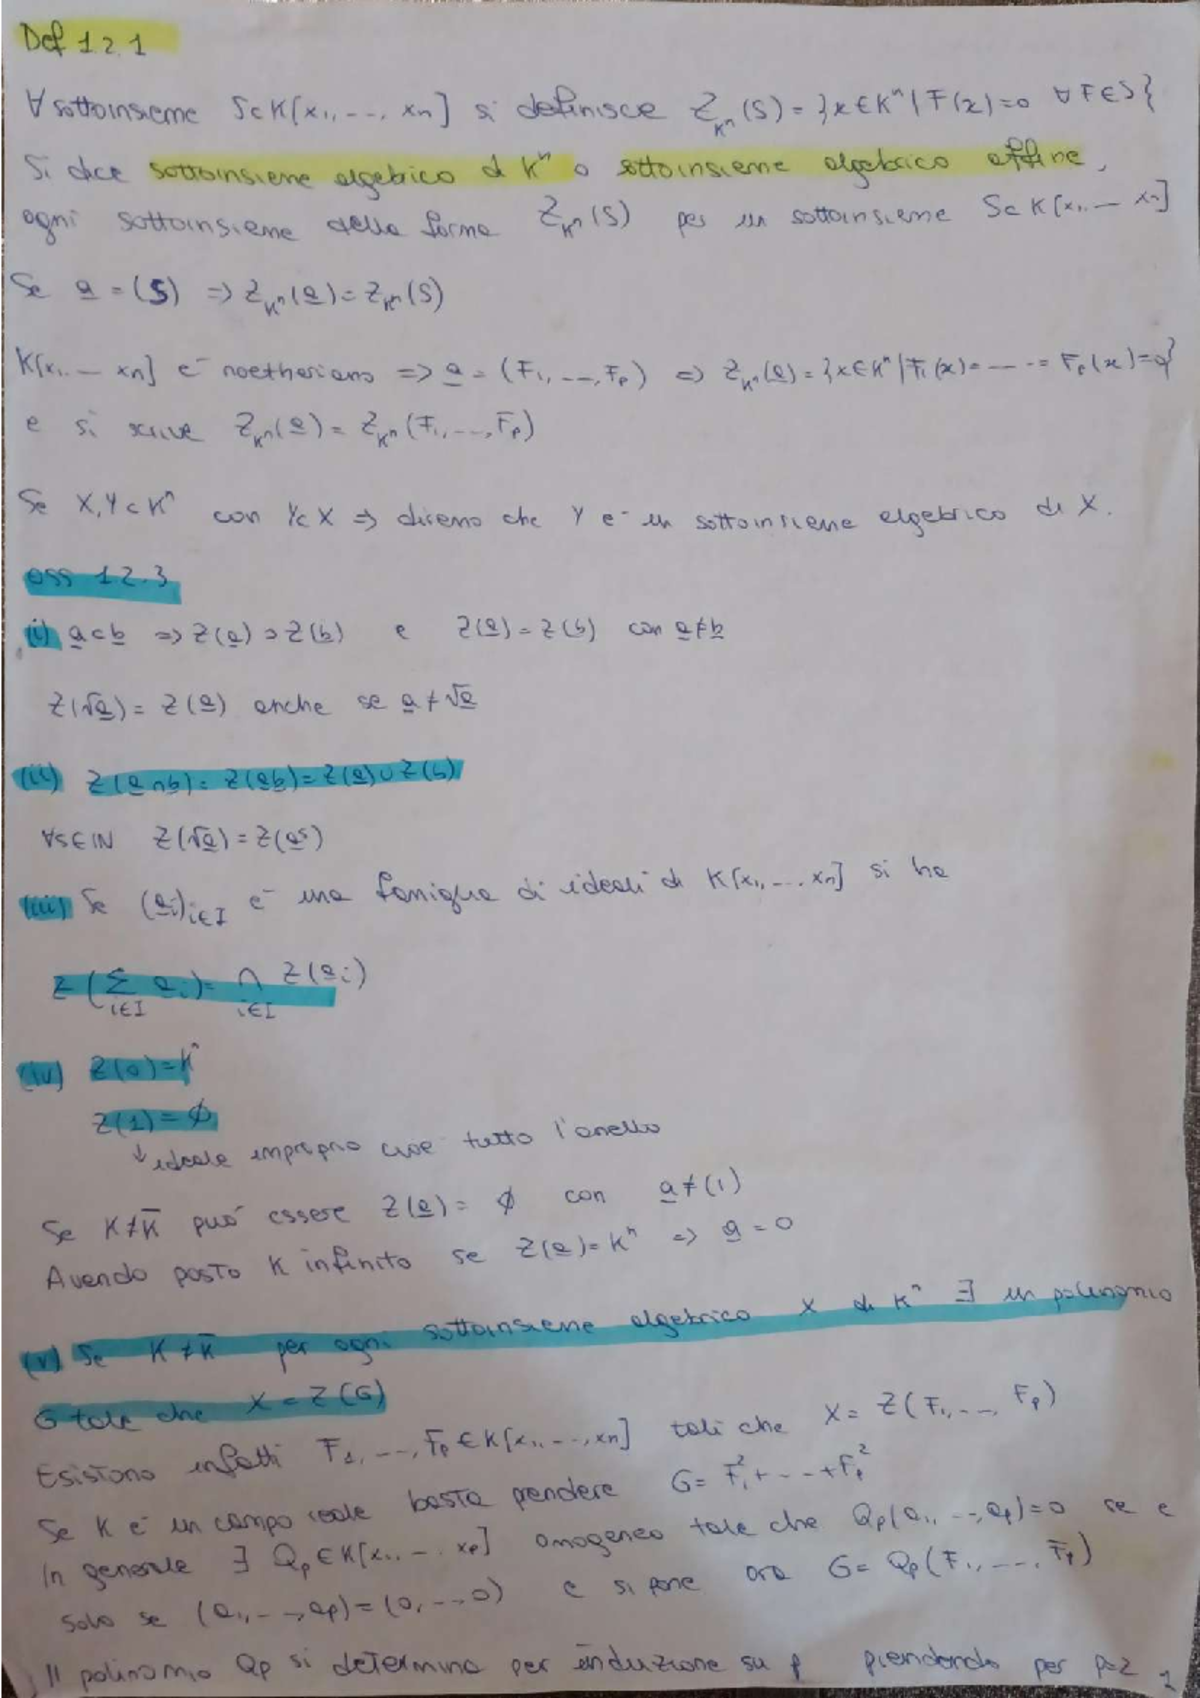 Def 1.2.1
∀ sottoinsieme S⊂K[x1,--,xn] si definisce Z_{K^n}(S)={x∈K^n | F(x)=0 ∀F∈S}
Si dice sottoinsieme algebrico di K^n o sottoinsieme algebrico affine,
ogni sottoinsieme della forma Z_{K^n}(S) per un sottoinsieme S⊂K[x1,-- xn]
Se a=(S) => Z_{K^n}(a)=Z_{K^n}(S)
K[x1,-- xn] e' noetheriano => a=(F1,--,Fp) => Z_{K^n}(a)={x∈K^n | F1(x)=----=Fp(x)=0}
e si scrive Z_{K^n}(a)=Z_{K^n}(F1,---,Fp)
Se X,Y⊂K^n con Y⊂X => diremo che Y e' un sottoinsieme algebrico di X.
oss 1.2.3
(i) a⊂b => Z(a)⊃Z(b) e Z(a)=Z(b) con a≠b
Z(√a)=Z(a) anche se a≠√a
(ii) Z(a∩b)=Z(ab)=Z(a)∪Z(b)
∀s∈IN Z(√a)=Z(a^s)
(iii) Se (ai)_{i∈I} e' una famiglia di ideali di K[x1,--,xn] si ha
Z(∑_{i∈I} ai)=∩_{i∈I} Z(ai)
(iv) Z(0)=K^n
Z(1)=∅
↓ ideale improprio cioe' tutto l'anello
Se K≠K̅ puo' essere Z(a)=∅ con a≠(1)
Avendo posto K infinito se Z(a)=K^n => a=0
(v) Se K≠K̅ per ogni sottoinsieme algebrico X di K^n ∃ un polinomio
G tale che X=Z(G)
Esistono infatti F1,---,Fp∈K[x1,--,xn] tali che X=Z(F1,--,Fp)
Se K e' un campo reale basta prendere G=F1²+---+Fp²
In generale ∃ Qp∈K[x1,--,xp] omogeneo tale che Qp(a1,--,ap)=0 se e
solo se (a1,--,ap)=(0,--,0) e si pone ora G=Qp(F1,---,Fp)
Il polinomio Qp si determina per induzione su p prendendo per p=2